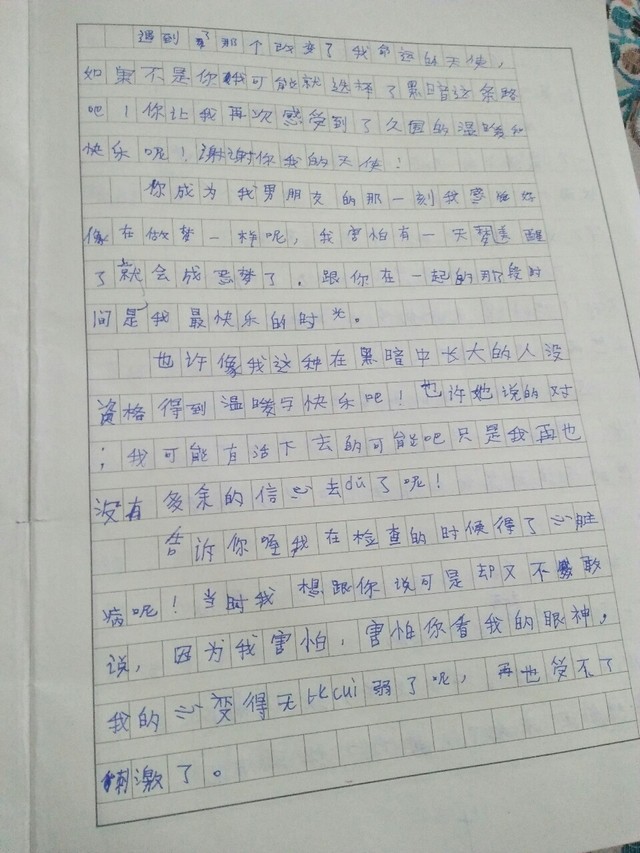 遇到了那个改变了我命运的天使，
如果不是你我可能就选择了黑暗这条路
吧！你让我再次感受到了久违的温暖和
快乐呢！谢谢你我的天使！
你成为我男朋友的那一刻我感觉好
像在做梦一样呢，我害怕有一天梦醒
了就会成恶梦了．跟你在一起的那段时
间是我最快乐的时光。
也许像我这种在黑暗中长大的人没
资格得到温暖与快乐吧！也许她说的对
；我可能有活下去的可能吧只是我再也
没有多余的信心去dǔ了呢！
告诉你哦我在检查的时候得了心脏
病呢！当时我想跟你说可是却又不敢
说，因为我害怕，害怕你看我的眼神，
我的心变得无比cuì弱了呢，再也受不了
刺激了。